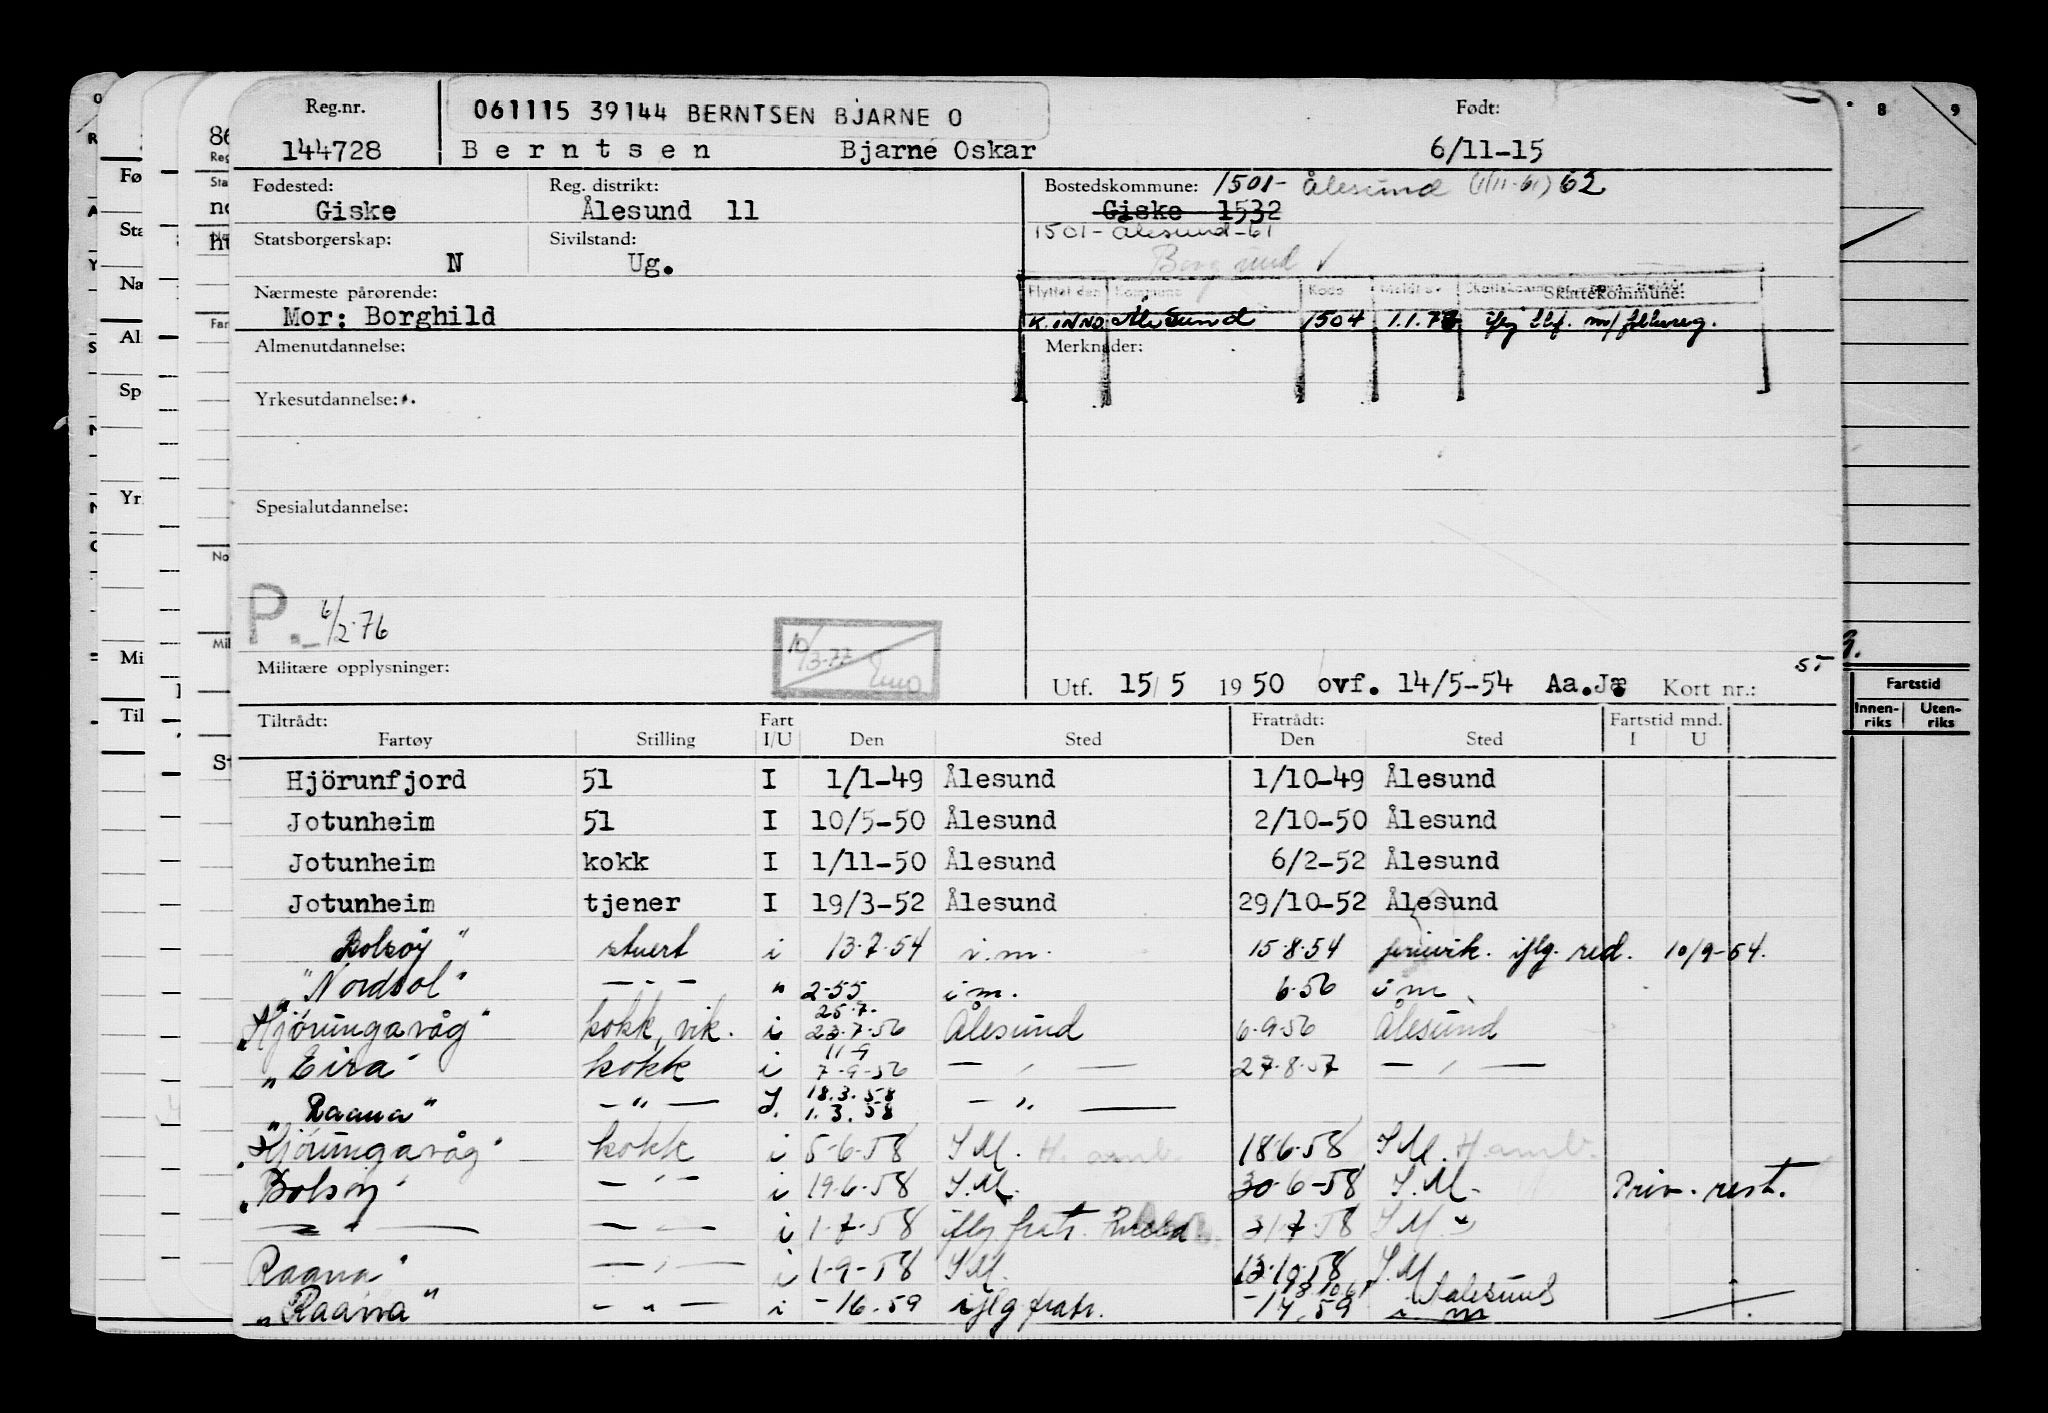 Reg.nr. 061115 39144 BERNTSEN BJARNE O Født:
144728 Berntsen Bjarne Oskar 6/11-15
Fødested: Reg. distrikt: Bostedskommune: 1501- Ålesund (1/11-61) 62
Giske Ålesund 11 Giske 1532
Statsborgerskap: Sivilstand: 1501- Ålesund-61
N Ug. Borgund ✓
Nærmeste pårørende: Flyttet den Kommune Kode Meldt av Skattekommune:
Mor: Borghild K.INND. Ålesund 1504 1.1.77
Almenutdannelse: Merknader:
Yrkesutdannelse:
Spesialutdannelse:
P. 6/2-76
10/3-77
Militære opplysninger: Utf. 15/5 1950 ovf. 14/5-54 Aa.Jæ Kort nr.:
Tiltrådt: Fart Fratrådt: Fartstid mnd.
Fartøy Stilling I/U Den Sted Den Sted I U
Hjörunfjord 51 I 1/1-49 Ålesund 1/10-49 Ålesund
Jotunheim 51 I 10/5-50 Ålesund 2/10-50 Ålesund
Jotunheim kokk I 1/11-50 Ålesund 6/2-52 Ålesund
Jotunheim tjener I 19/3-52 Ålesund 29/10-52 Ålesund
Bolsøy" stuert i 13.7.54 i.m. 15.8.54 ferievik. iflg. red. 10/9-54.
"Nordsol" — " — " 2-55 i m. 6.56 i m.
25.7.
"Hjørungavåg" kokk, vik. i 23.7.56 Ålesund 6.9.56 Ålesund
11-9
"Eira" kokk i 7-9-56 — " — 27.8.57 — " —
18.3.58
"Raana" — " — I. 1.3.58 — " —
"Hjørungavåg" kokk i 5-6-58 I.M. 18.6.58 I.M.
"Bolsøy" — " — i 19.6.58 I.M. 30.6-58 I.M. Priv. rest.
— " — — " — i 1.7.58 iflg. fratr. 31.7.58 I.M.
Raana" — " — i 1-9-58 I.M. 13.10.58 I.M.
13.10.61 Aalesund
"Raana" — " — i -16.59 iflg fratr. -17.59 i m
8 9
Fartstid
Innen-riks Uten-riks